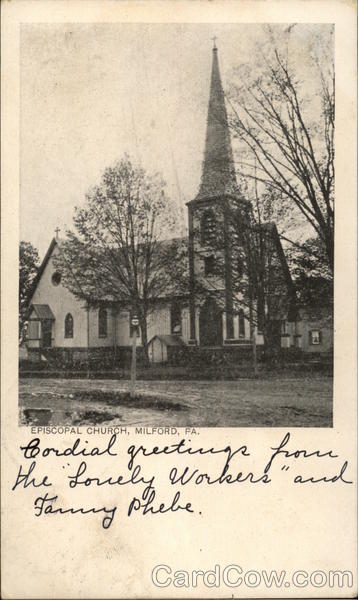 EPISCOPAL CHURCH, MILFORD, PA.
Cordial greetings from
the "Lonely Workers" and
Fanny Phebe.
CardCow.com